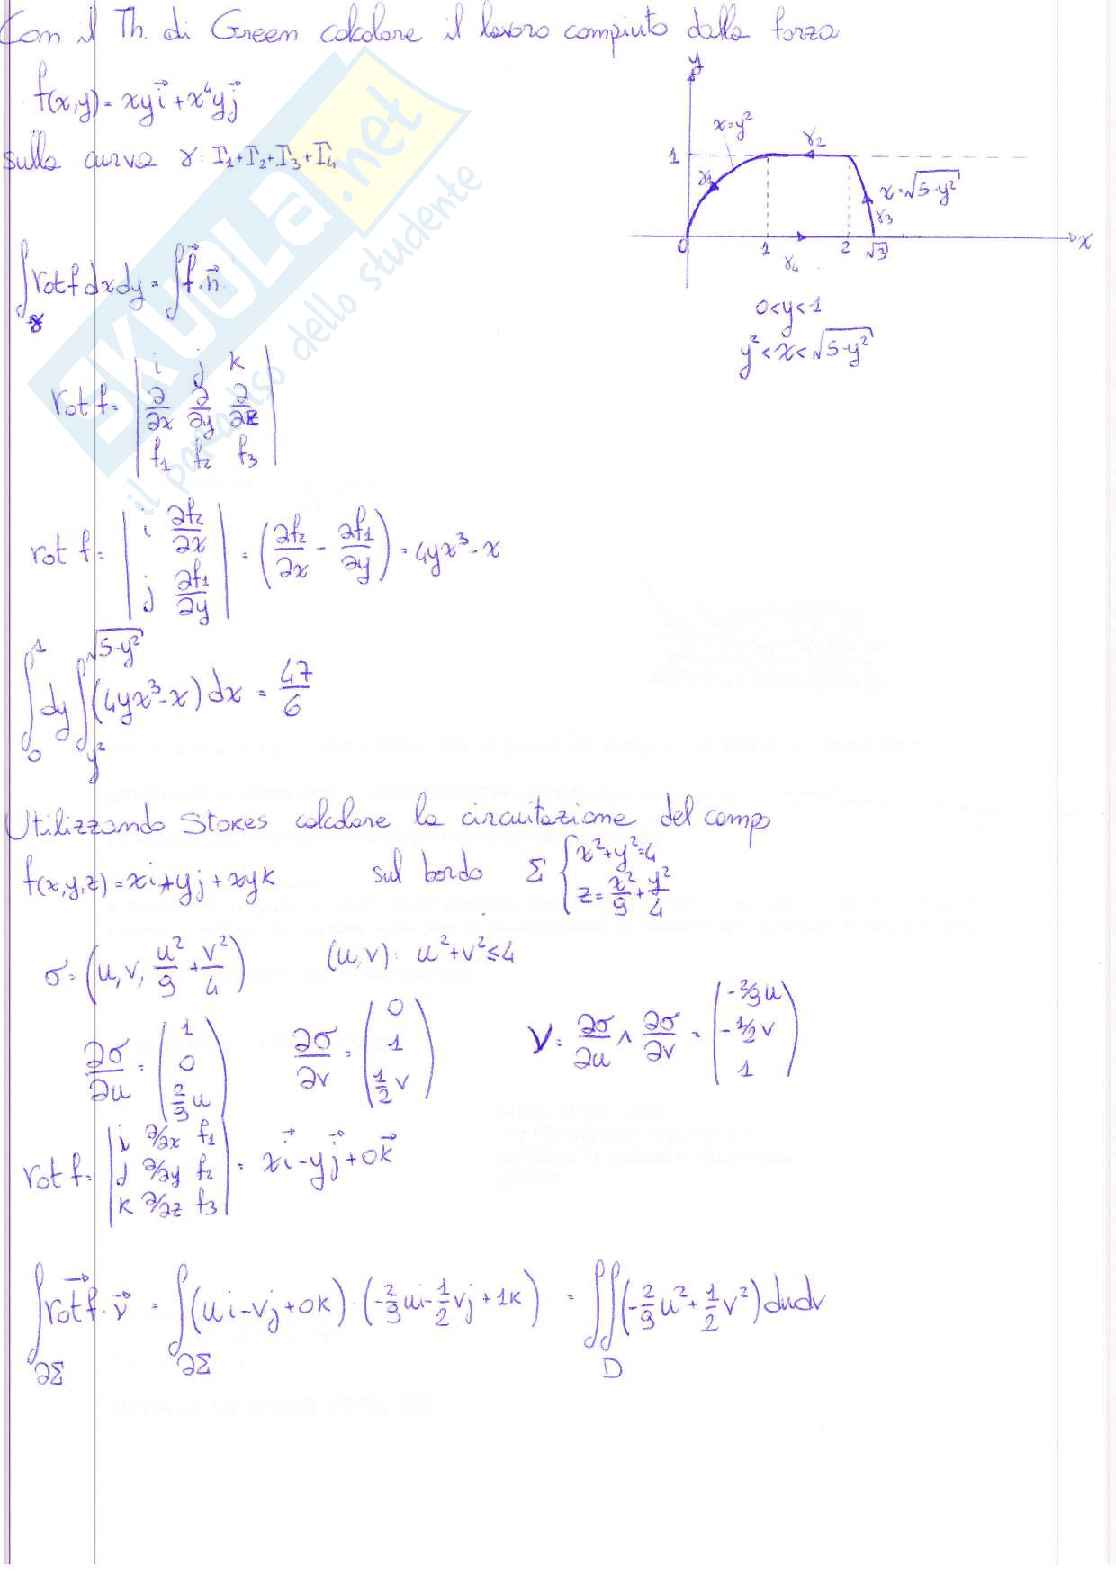 Con il Th. di Green calcolare il lavoro compiuto dalla forza
f(x,y) = xy i⃗ + x⁴y j⃗
sulla curva γ: Γ₁+Γ₂+Γ₃+Γ₄
y
x=y²
1
γ₂
γ₁
x=√(5-y²)
γ₃
0
1
2
√5
x
γ₄
0<y<1
y²<x<√(5-y²)
∫_γ rot f dxdy = ∫ f⃗·n⃗
rot f = | i j k |
| ∂/∂x ∂/∂y ∂/∂z |
| f₁ f₂ f₃ |
rot f = | i ∂f₂/∂x |
| j ∂f₁/∂y | = (∂f₂/∂x - ∂f₁/∂y) = 4yx³-x
∫₀¹ dy ∫_{y²}^{√(5-y²)} (4yx³-x) dx = 47/6
Utilizzando Stokes calcolare la circuitazione del campo
f(x,y,z) = xi+yj+xyk sul bordo Σ { x²+y²=4
z = x²/9 + y²/4
σ = (u, v, u²/9 + v²/4) (u,v): u²+v²≤4
∂σ/∂u = (1, 0, 2/9 u) ∂σ/∂v = (0, 1, 1/2 v) ν = ∂σ/∂u ∧ ∂σ/∂v = (-2/9 u, -1/2 v, 1)
rot f = | i ∂/∂x f₁ |
| j ∂/∂y f₂ | = x i⃗ - y j⃗ + 0 k⃗
| k ∂/∂z f₃ |
∫_{∂Σ} rot f⃗ · ν⃗ = ∫_{∂Σ} (ui-vj+0k)·(-2/9 ui - 1/2 vj + 1k) = ∬_D (-2/9 u² + 1/2 v²) dudv
SKUOLA.net
il paradiso dello studente